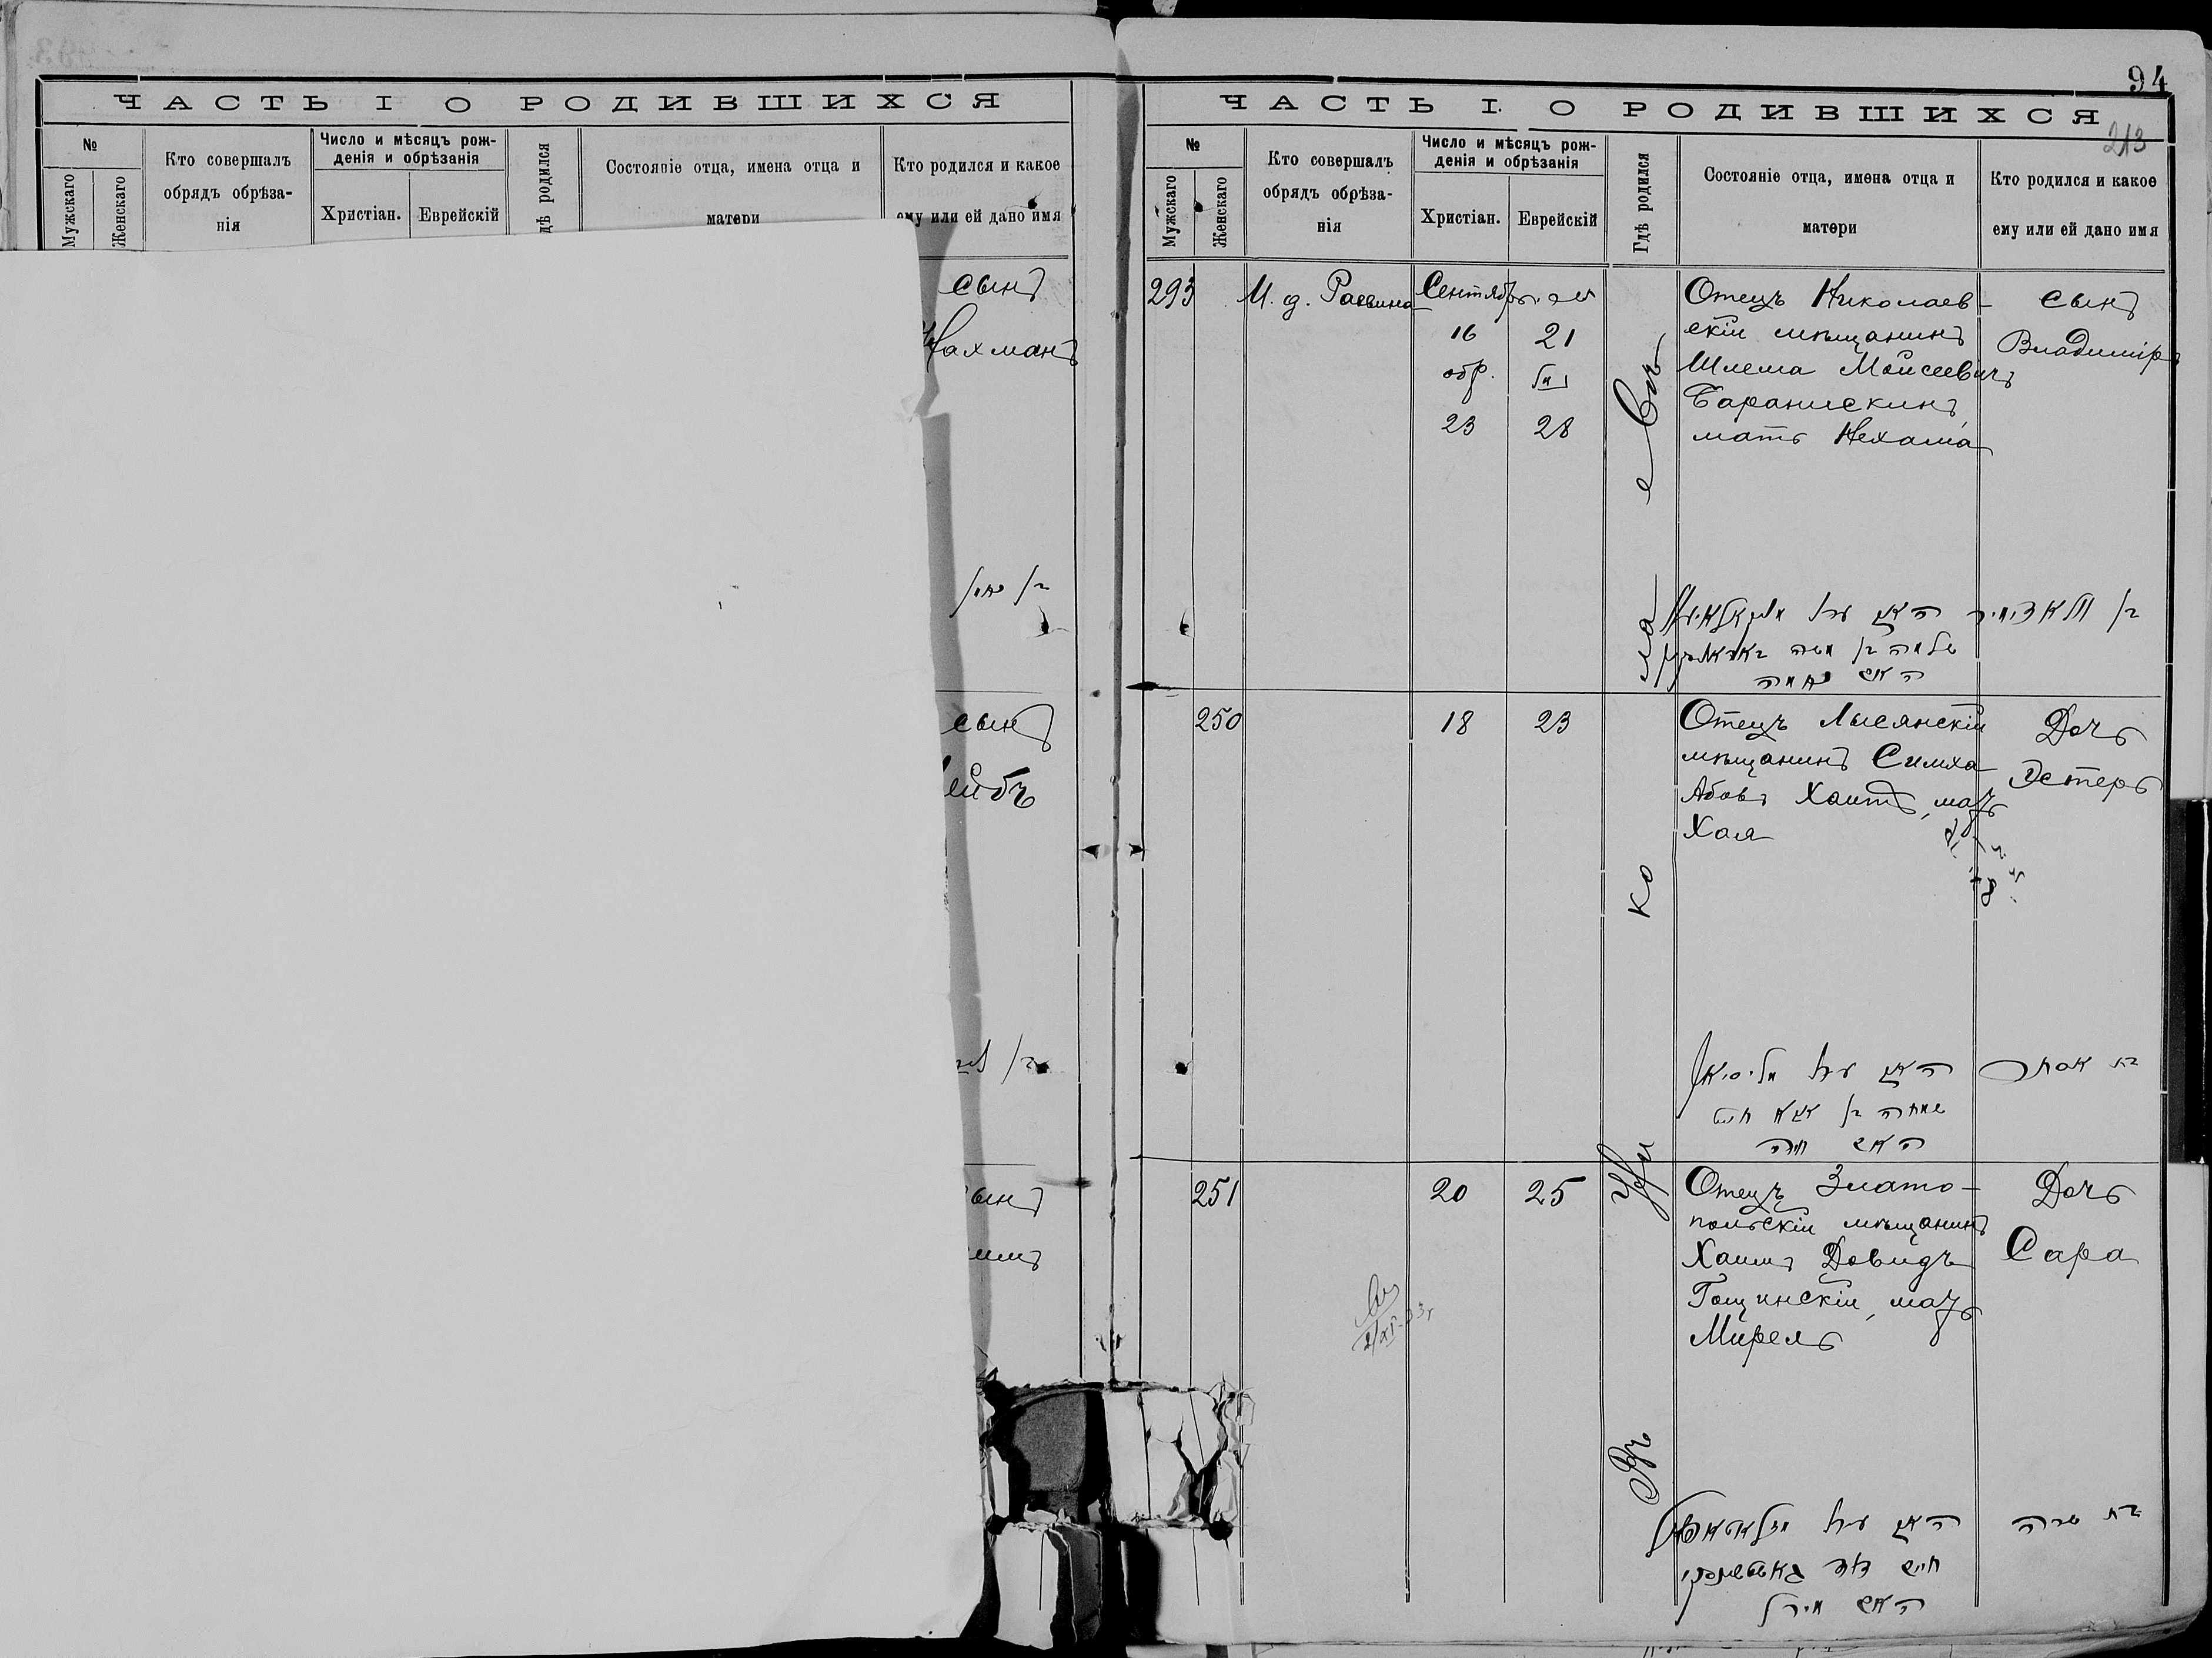 ЧАСТЬ I О РОДИВШИХСЯ
№
Мужскаго
Женскаго
Кто совершалъ
обрядъ обрѣза-
нія
Число и мѣсяцъ рож-
денія и обрѣзанія
Христіан.
Еврейскій
дѣ родился
Состояніе отца, имена отца и
матери
Кто родился и какое
ему или ей дано имя
сынъ
Нахманъ
сынъ
ейбъ
ынъ
94
213
ЧАСТЬ I. О РОДИВШИХСЯ
№
Мужскаго
Женскаго
Кто совершалъ
обрядъ обрѣза-
нія
Число и мѣсяцъ рож-
денія и обрѣзанія
Христіан.
Еврейскій
Гдѣ родился
Состояніе отца, имена отца и
матери
Кто родился и какое
ему или ей дано имя
293
М. д. Раввина
Сентябрь
16
21
обр.
23
28
Отецъ Николаев-
скій мѣщанинъ
Шлема Мойсеевичъ
мать Нехама
сынъ
Владиміръ
האב עיר
שלמה בן משה
האם נחמה
250
18
23
Отецъ Лысянскій
мѣщанинъ Симха
Абовъ Хаитъ, мать
Хая
Дочь
Эстеръ
האב עיר
שמחה בן אבא חייט
האם חיה
בת אסתר
251
20
25
Отецъ Злато-
польскій мѣщанинъ
Хаимъ Довидъ
мать
Мирель
Дочь
Сара
האב עיר
חיים דוד
האם מירל
בת שרה